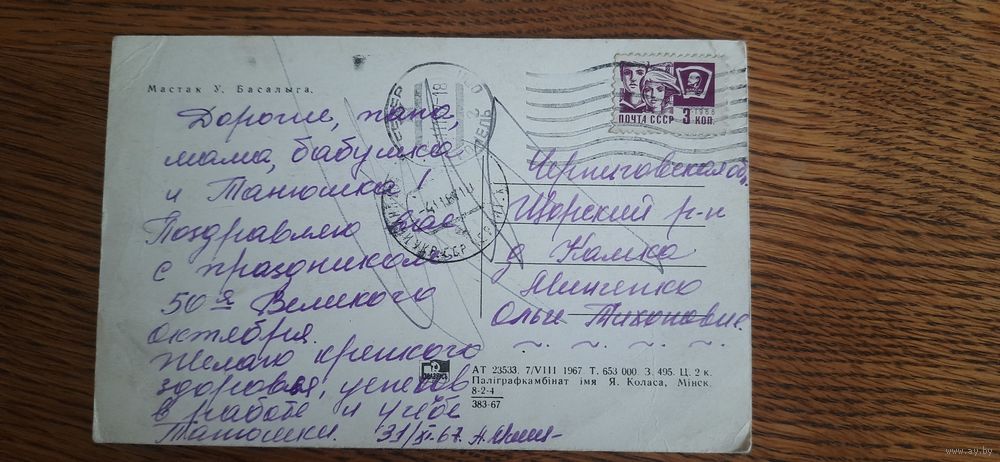 Мастак У. Басалыга.
Дорогие, папа,
мама, бабушка
и Танюшка!
Поздравляю Вас
с праздником
50 й Великого
октября.
Желаю крепкого
здоровья, успехов
в работе и учебе
Танюшки. 31/XI.67.
ПОЧТА СССР 3 КОП.
Черниговская об.
Щорский р-н
д Камка
Минченко
Ольге Тихоновне.
АТ 23533. 7/VIII 1967 Т. 653 000 З. 495. Ц. 2 к.
Паліграфкамбінат імя Я. Коласа, Мінск.
8-2-4
383-67
www.ay.by